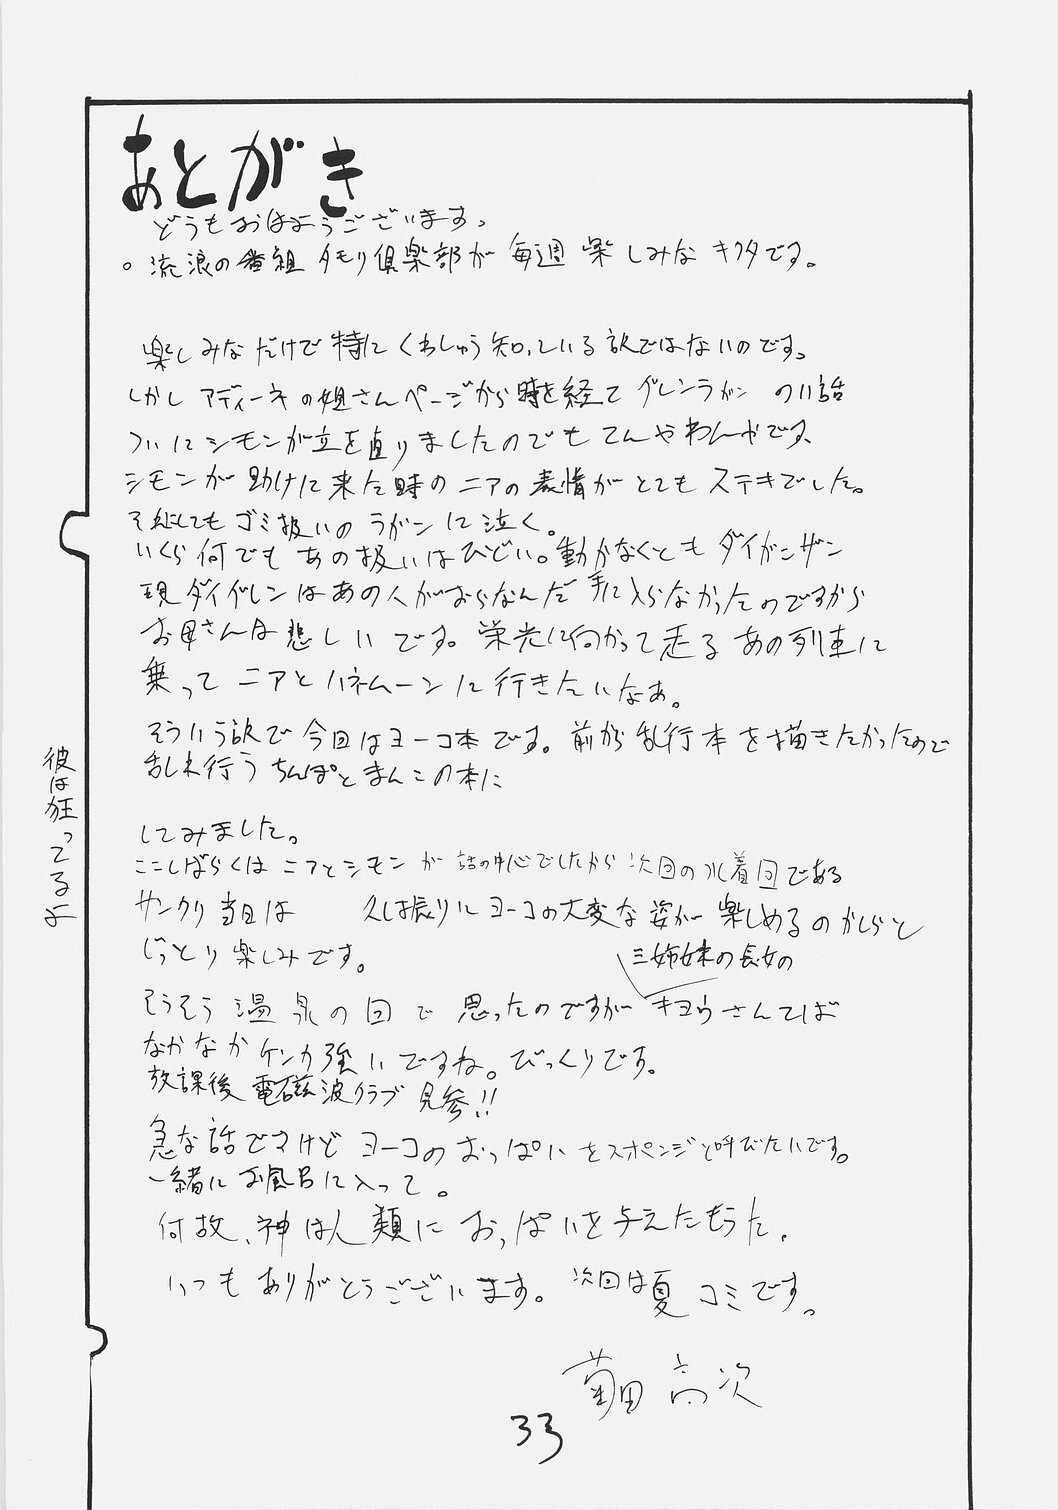 あとがき
どうもおはようございます。
流浪の番組 タモリ倶楽部が毎週楽しみなキクタです。
楽しみなだけで特にくわしゅう知っている訳ではないのです。
しかし アディーネの姐さんページから時を経て グレンラガン の11話
ついにシモンが立ち直りましたのでもてんやわんやです、
シモンが助けに来た時のニアの表情がとてもステキでした。
それにしてもゴミ扱いのラガンに泣く。
いくら何でもあの扱いはひどい。動かなくともダイガンザン
現ダイグレンはあの人がおらなんだら手に入らなかったのですから
お母さんは悲しいです。栄光に向かって走るあの列車に
乗って ニアとハネムーンに行きたいなぁ。
そういう訳で今回はヨーコ本です。前から乱行本を描きたかったので
乱れ行うちんぽとまんこの本に
してみました。
ここしばらくはニアとシモンが話の中心でしたから次回の水着回である
サンクリ当日は 久し振りにヨーコの大変な姿が楽しめるのかしらと
じっとり楽しみです。
三姉妹の長女の
そうそう温泉の回で思ったのですが キヨウさんてば
なかなかケンカ強いですね。びっくりです。
放課後電磁波クラブ見参!!
急な話ですけど ヨーコのおっぱいをスポンジと呼びたいです。
一緒にお風呂に入って。
何故、神は人類におっぱいを与えたもうた。
いつもありがとうございます。次回は夏コミです。
菊田高次
33
彼は狂ってるよ